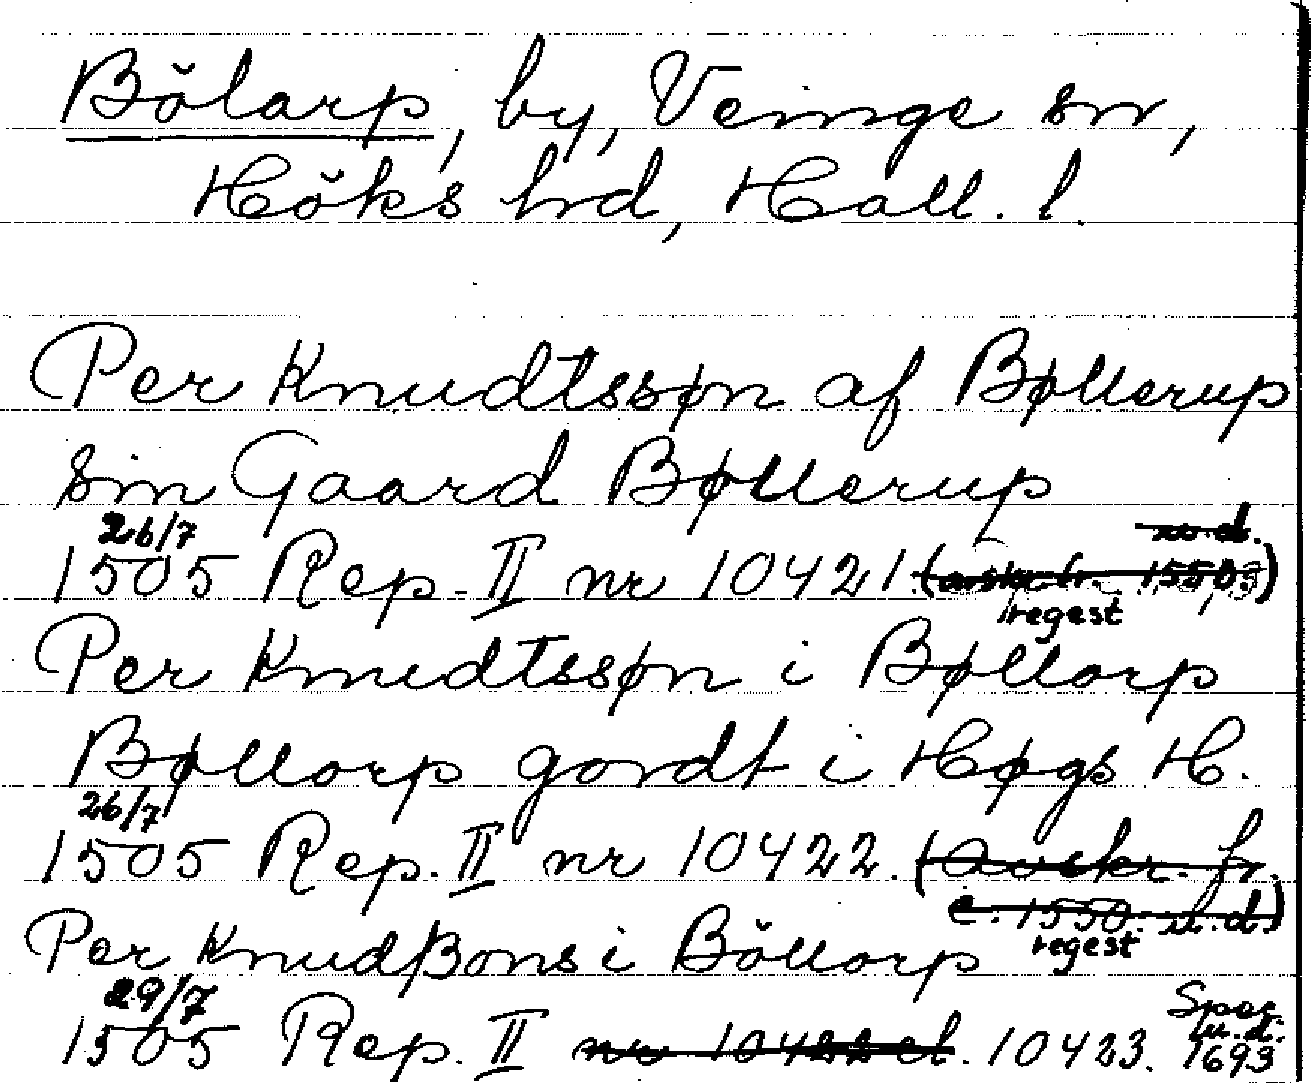 Bölarp, by, Veinge sn,
Höks hrd, Hall. l.
Per Knudtssøn af Bøllerup
sin Gaard Bøllerup
26/7
1505 Rep. II nr 10421. (avskr. fr. 1550, u.d.)
regest
Per Knudtssøn i Bøllorp
Bøllorp gordt i Høgs H.
26/7
1505 Rep. II nr 10422. (avskr. fr.
c. 1550. u.d.)
regest
Per Knudßøns i Böllorp
29/7
1505 Rep. II nr 10422 et. 10423. Spec. u.d. 1693